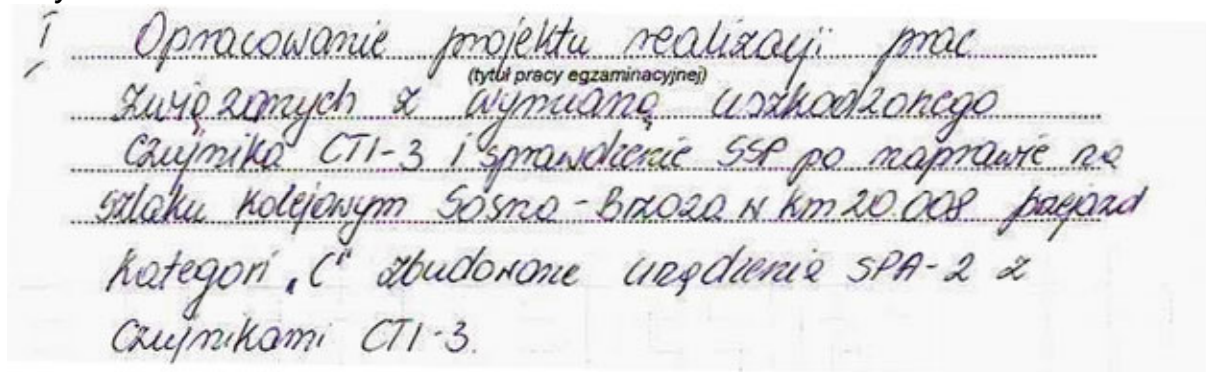 I Opracowanie projektu realizacji prac
(tytuł pracy egzaminacyjnej)
związanych z wymianą uszkodzonego
Czujnika CTI-3 i sprawdzenie SSP po naprawie na
szlaku kolejowym Sosna-Brzoza w km 20.008 przejazd
kategori "C" zbudowane urządzenia SPA-2 z
Czujnikami CTI-3.